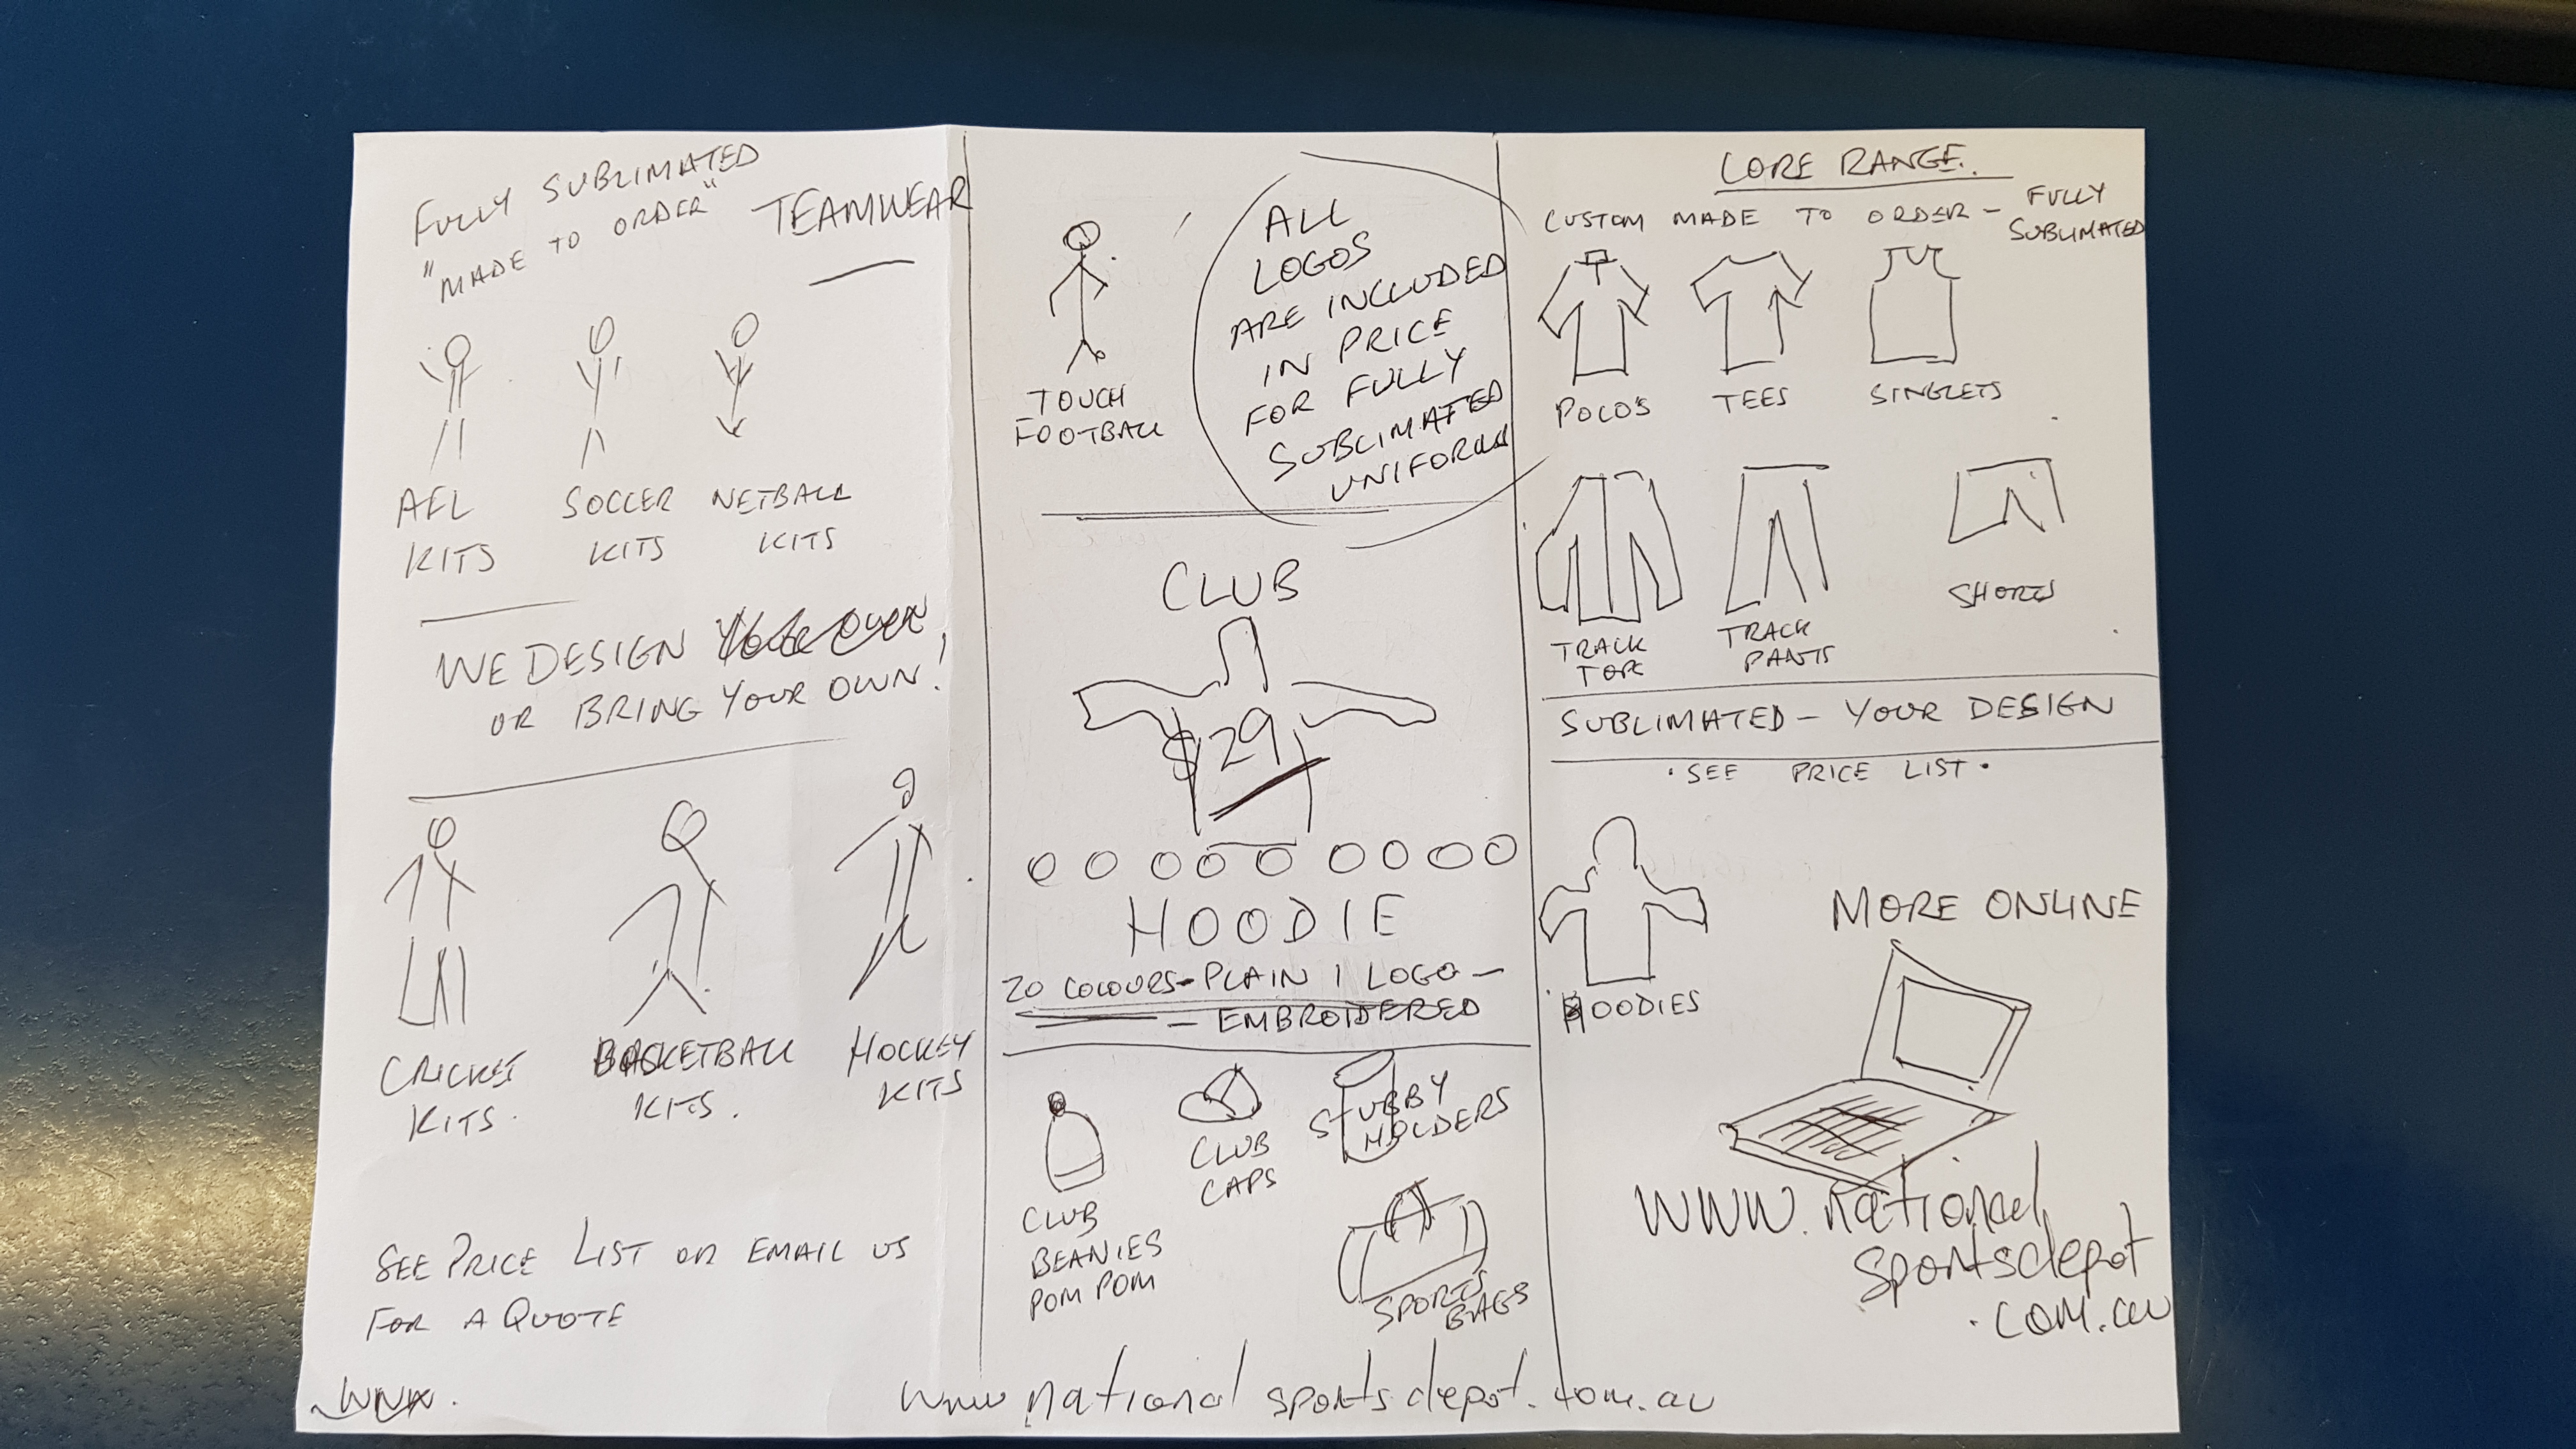 FULLY SUBLIMATED
"MADE TO ORDER"
TEAMWEAR
AFL
KITS
SOCCER
KITS
NETBALL
KITS
WE DESIGN
OR BRING YOUR OWN!
CRICKET
KITS.
BASKETBALL
KITS.
HOCKEY
KITS
SEE PRICE LIST OR EMAIL US
FOR A QUOTE
WWW.
TOUCH
FOOTBALL
ALL
LOGOS
ARE INCLUDED
IN PRICE
FOR FULLY
SUBLIMATED
UNIFORM
CLUB
$29
HOODIE
20 COLOURS-PLAIN 1 LOGO-
- EMBROIDERED
CLUB
BEANIES
POM POM
CLUB
CAPS
STUBBY
HOLDERS
SPORTS
BAGS
www.nationalsportsdepot.com.au
CORE RANGE.
CUSTOM MADE TO ORDER - FULLY
SUBLIMATED
POLO'S
TEES
SINGLETS
TRACK
TOPS
TRACK
PANTS
SHORTS
SUBLIMATED - YOUR DESIGN
• SEE PRICE LIST •
HOODIES
MORE ONLINE
WWW.national
sportsdepot
.com.au